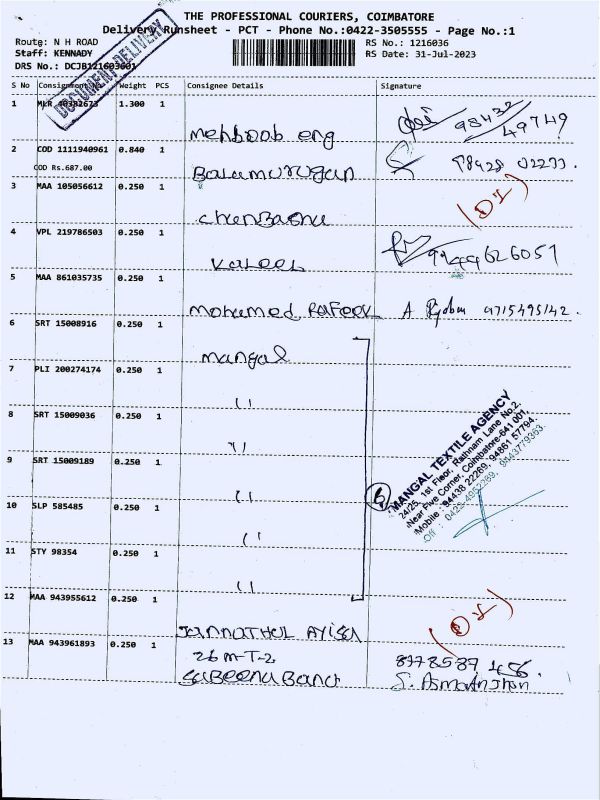 THE PROFESSIONAL COURIERS, COIMBATORE
Delivery Runsheet - PCT - Phone No.:0422-3505555 - Page No.:1
Route: N H ROAD
RS No.: 1216036
Staff: KENNADY
RS Date: 31-Jul-2023
DRS No.: DCJB121603601
DOCUMENT DELIVERY
S No Consignment Weight PCS Consignee Details Signature
1 MLR 40382673 1.300 1
mehboob eng 98432 49749
2 COD 1111940961 0.840 1
COD Rs.687.00
Balamurugan 98428 02233.
3 MAA 105056612 0.250 1
4 VPL 219786503 0.250 1
5 MAA 861035735 0.250 1
mohamed Rafeek A 9715495142.
6 SRT 15008916 0.250 1
mangal
7 PLI 200274174 0.250 1
"
8 SRT 15009036 0.250 1
"
9 SRT 15009189 0.250 1
"
10 SLP 585485 0.250 1
"
11 STY 98354 0.250 1
"
6
MANGAL TEXTILE AGENCY
24/25, 1st Floor, Rathnam Lane No.2,
Near Five Corner, Coimbatore-641 001.
Mobile : 94438 22269, 94861 57794.
Off : 0422-4952269, 9843779363.
12 MAA 943955612 0.250 1
JANNATHUL AYISA
13 MAA 943961893 0.250 1
26 M-T-2 8778587 456.
SABEENA Banu S. Asmathjhon